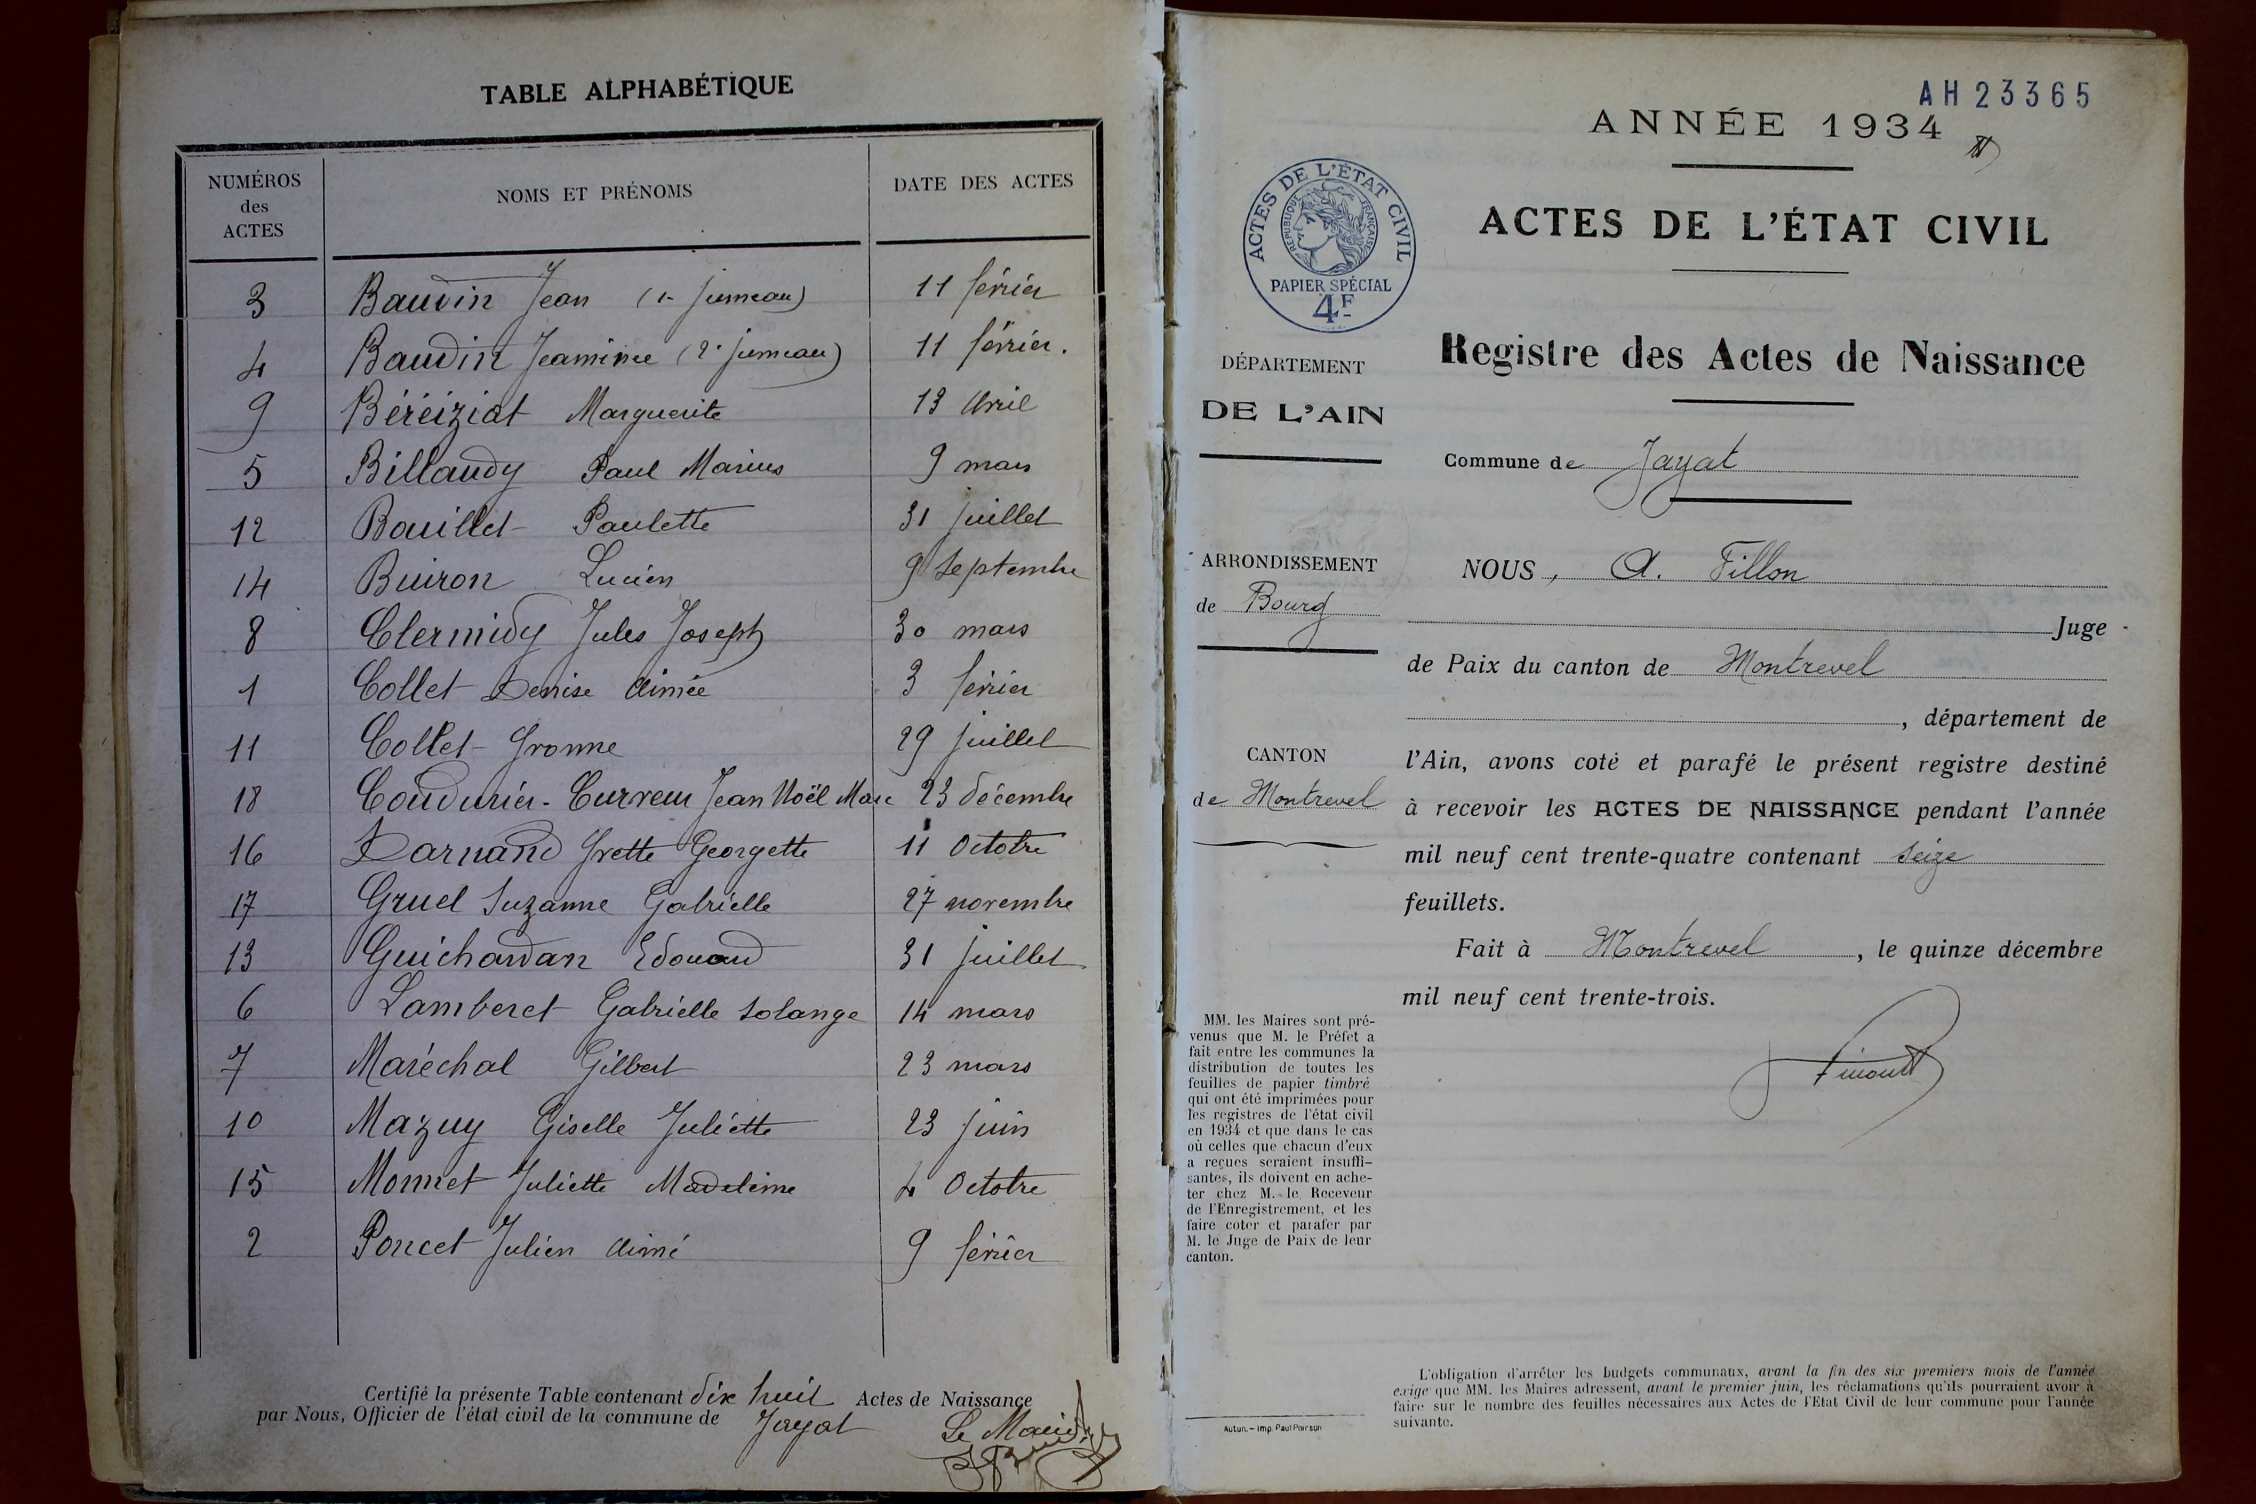 TABLE ALPHABÉTIQUE
NUMÉROS des ACTES NOMS ET PRÉNOMS DATE DES ACTES
3 Baudin Jean (1er jumeau) 11 février
4 Baudin Jeannine (2e jumeau) 11 février.
9 Béréiziat Marguerite 13 Avril
5 Billaudy Paul Marius 9 mars
12 Bouillet Paulette 31 juillet
14 Buiron Lucien 9 Septembre
8 Clermidy Jules Joseph 30 mars
1 Collet Denise Aimée 3 février
11 Collet Yvonne 29 juillet
18 Coudurier-Curveur Jean Noël Marc 23 décembre
16 Darnand Yvette Georgette 11 Octobre
17 Gruel Suzanne Gabrielle 27 novembre
13 Guichardan Edouard 31 juillet
6 Lamberet Gabrielle Solange 14 mars
7 Maréchal Gilbert 23 mars
10 Mazuy Giselle Juliette 23 juin
15 Monnet Juliette Madeleine 4 Octobre
2 Poncet Julien Aimé 9 février
Certifié la présente Table contenant dix huit Actes de Naissance
par Nous, Officier de l'état civil de la commune de Jayat
Le Maire
AH 23365
ANNÉE 1934
ACTES DE L'ÉTAT CIVIL
RÉPUBLIQUE FRANÇAISE
PAPIER SPÉCIAL
4F
ACTES DE L'ÉTAT CIVIL
Registre des Actes de Naissance
DÉPARTEMENT
DE L'AIN
Commune de Jayat
ARRONDISSEMENT
de Bourg
CANTON
de Montrevel
NOUS, A. Fillon
Juge
de Paix du canton de Montrevel
, département de
l'Ain, avons coté et parafé le présent registre destiné
à recevoir les ACTES DE NAISSANCE pendant l'année
mil neuf cent trente-quatre contenant seize
feuillets.
Fait à Montrevel, le quinze décembre
mil neuf cent trente-trois.
MM. les Maires sont pré-
venus que M. le Préfet a
fait entre les communes la
distribution de toutes les
feuilles de papier timbré
qui ont été imprimées pour
les registres de l'état civil
en 1934 et que dans le cas
où celles que chacun d'eux
a reçues seraient insuffi-
santes, ils doivent en ache-
ter chez M. le Receveur
de l'Enregistrement, et les
faire coter et parafer par
M. le Juge de Paix de leur
canton.
Autun. - Imp. Paul Poirson
L'obligation d'arrêter les budgets communaux, avant la fin des six premiers mois de l'année
exige que MM. les Maires adressent, avant le premier juin, les réclamations qu'ils pourraient avoir à
faire sur le nombre des feuilles nécessaires aux Actes de l'Etat Civil de leur commune pour l'année
suivante.